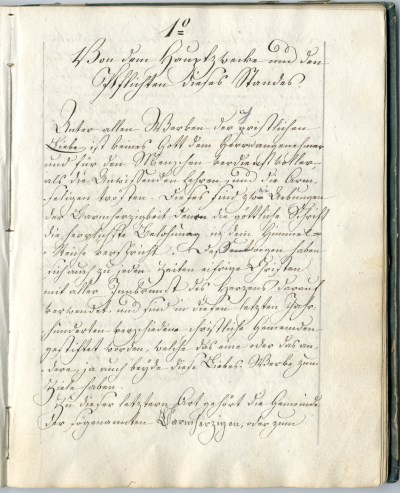 1º
Von dem Hauptzwecke und den
Pflichten dieses Standes.
Unter allen Werken der christlichen
Liebe, ist keines Gott dem Herrn angenehmer
und für den Menschen verdienstvoller,
als die Unwissenden lehren, und die Arm-
seligen trösten. Dieses sind zwei Uebungen
der Barmherzigkeit denen die göttliche Schrift
die herrlichste Belohnung in dem Himmel-
Reiche verspricht. Deßwegen haben
sich auch zu jeden Zeiten eifrige Christen
mit aller Innbrunst des Herzens darauf
verwendet und sind in diesen letzten Jahr-
hunderten verschiedene christliche Gemeinden
gestiftet worden, welche das eine oder das an-
dere, ja auch beyde diese Liebes-Werke zum
Ziele haben.
Zu dieser letztern Art gehört die Gemeinde
der sogenannten Barmherzigen, oder zum